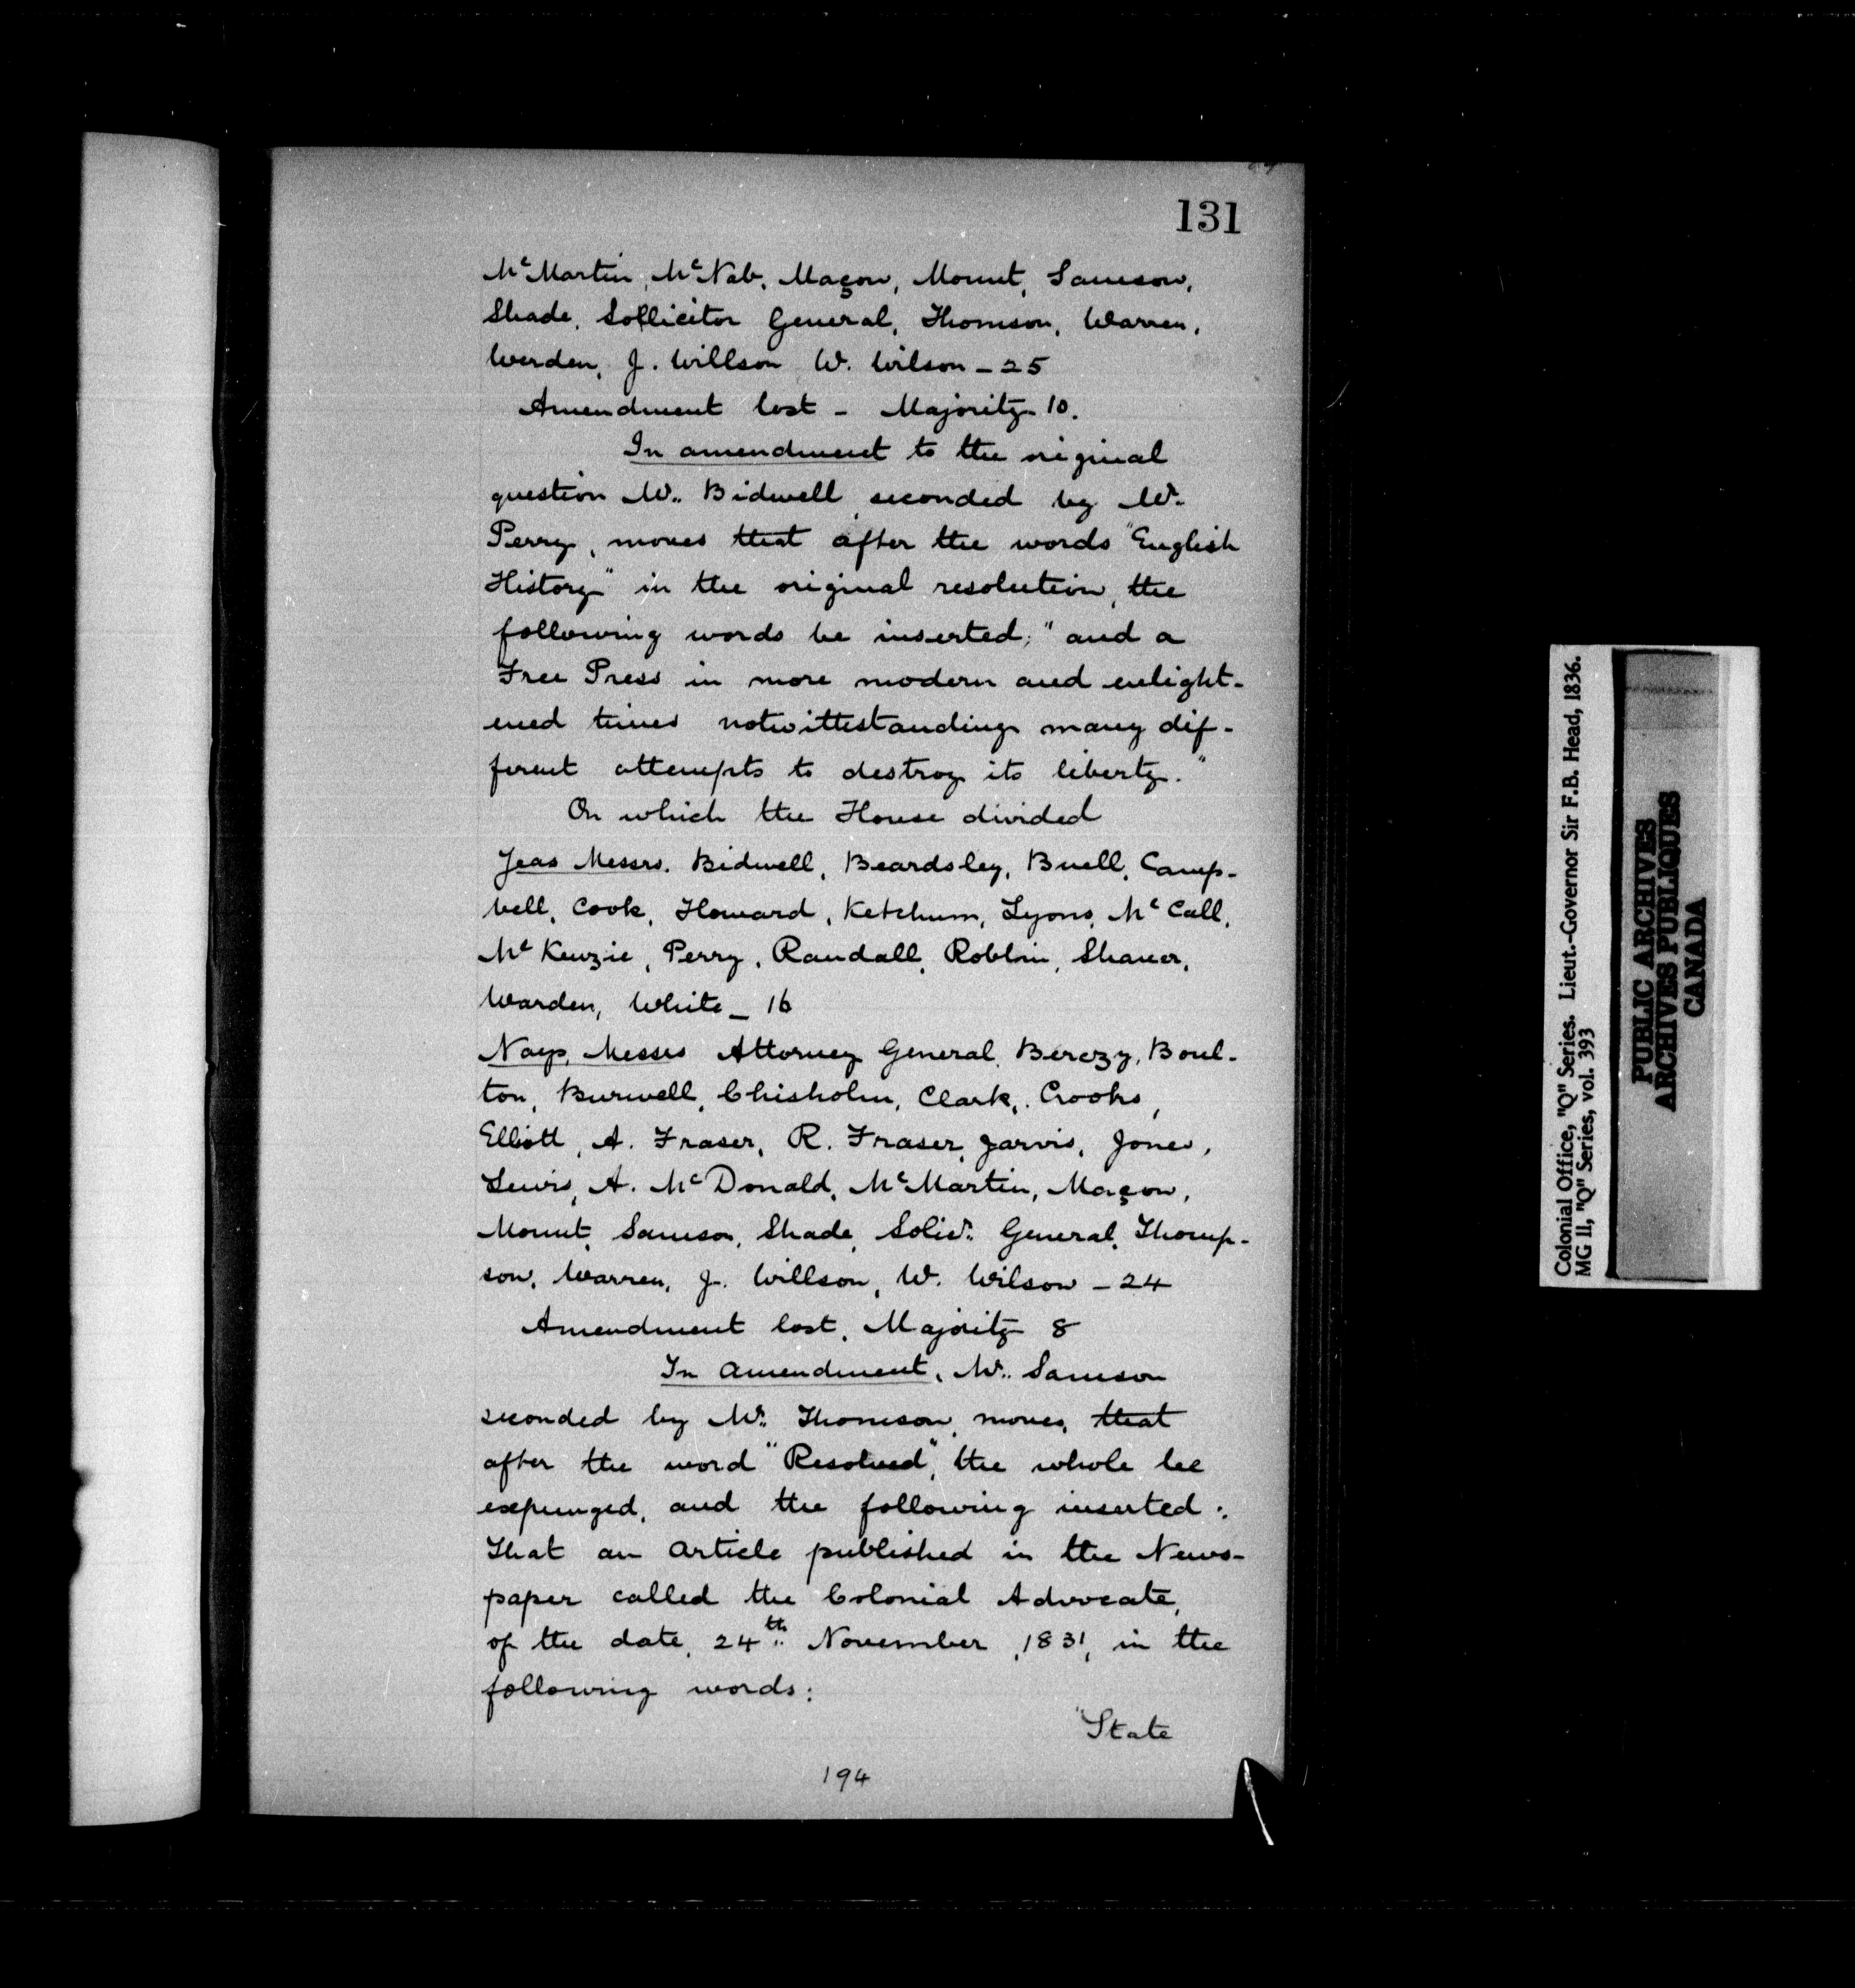 131
McMartin, McNab, Maçon, Mount, Samson,
Shade, Sollicitor General, Thomson, Warren,
Werden, J. Willson W. Wilson – 25
Amendment lost – Majority 10.
In amendment to the original
question Mr. Bidwell, seconded by Mr.
Perry, moves that after the words "English
History" in the original resolution, the
following words be inserted; "and a
Free Press in more modern and enlight-
ened times notwithstanding many dif-
ferent attempts to destroy its liberty."
On which the House divided
Yeas Messrs. Bidwell, Beardsley, Buell, Camp-
bell, Cook, Howard, Ketchum, Lyons, McCall,
McKenzie, Perry, Randall, Roblin, Shaver,
Warden, White – 16
Nays, Messrs Attorney General, Berczy, Boul-
ton, Burwell, Chisholm, Clark, Crooks,
Elliott, A. Fraser, R. Fraser, Jarvis, Jones,
Lewis, A. McDonald, McMartin, Maçon,
Mount, Samson, Shade, Solicr. General, Thomp-
son, Warren, J. Willson, W. Wilson – 24
Amendment lost, Majority 8
In amendment, Mr. Samson
seconded by Mr. Thomson, moves, that
after the word "Resolved", the whole be
expunged, and the following inserted:
That an article published in the News-
paper called the Colonial Advocate,
of the date, 24th November, 1831, in the
following words:
"State
194
Colonial Office, "Q" Series. Lieut.-Governor Sir F.B. Head, 1836.
MG 11, "Q" Series, vol. 393
PUBLIC ARCHIVES
ARCHIVES PUBLIQUES
CANADA